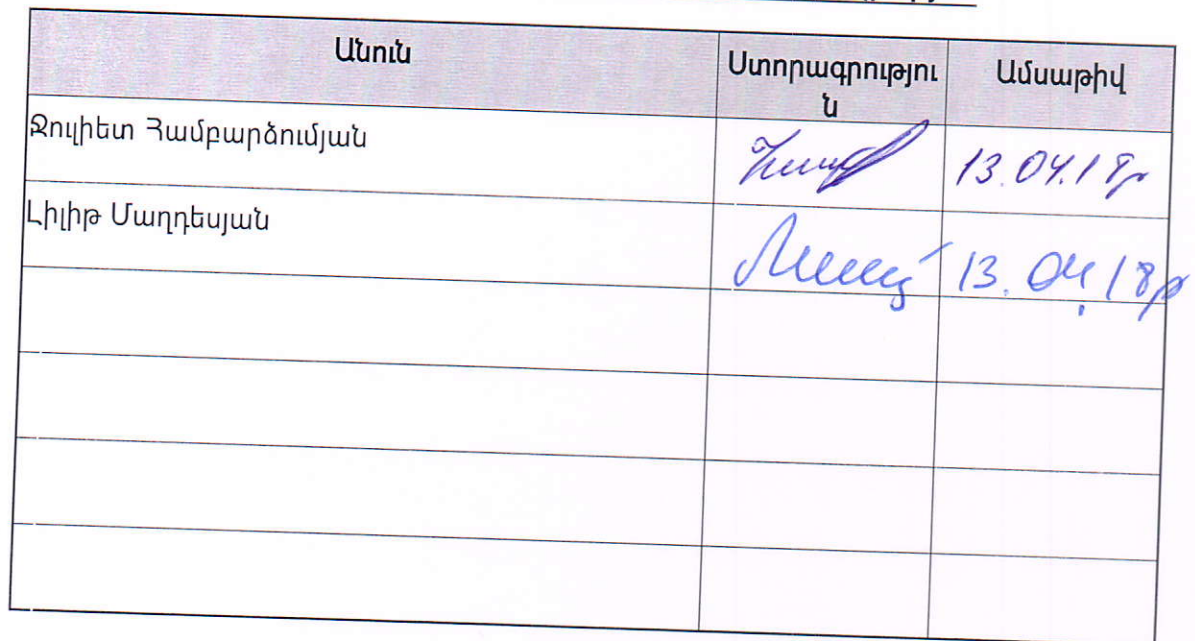 Անուն Ստորագրությու Ամսաթիվ
ն
Ջուլիետ Համբարձումյան 13.04.18թ
Լիլիթ Մաղդեսյան 13.04.18թ